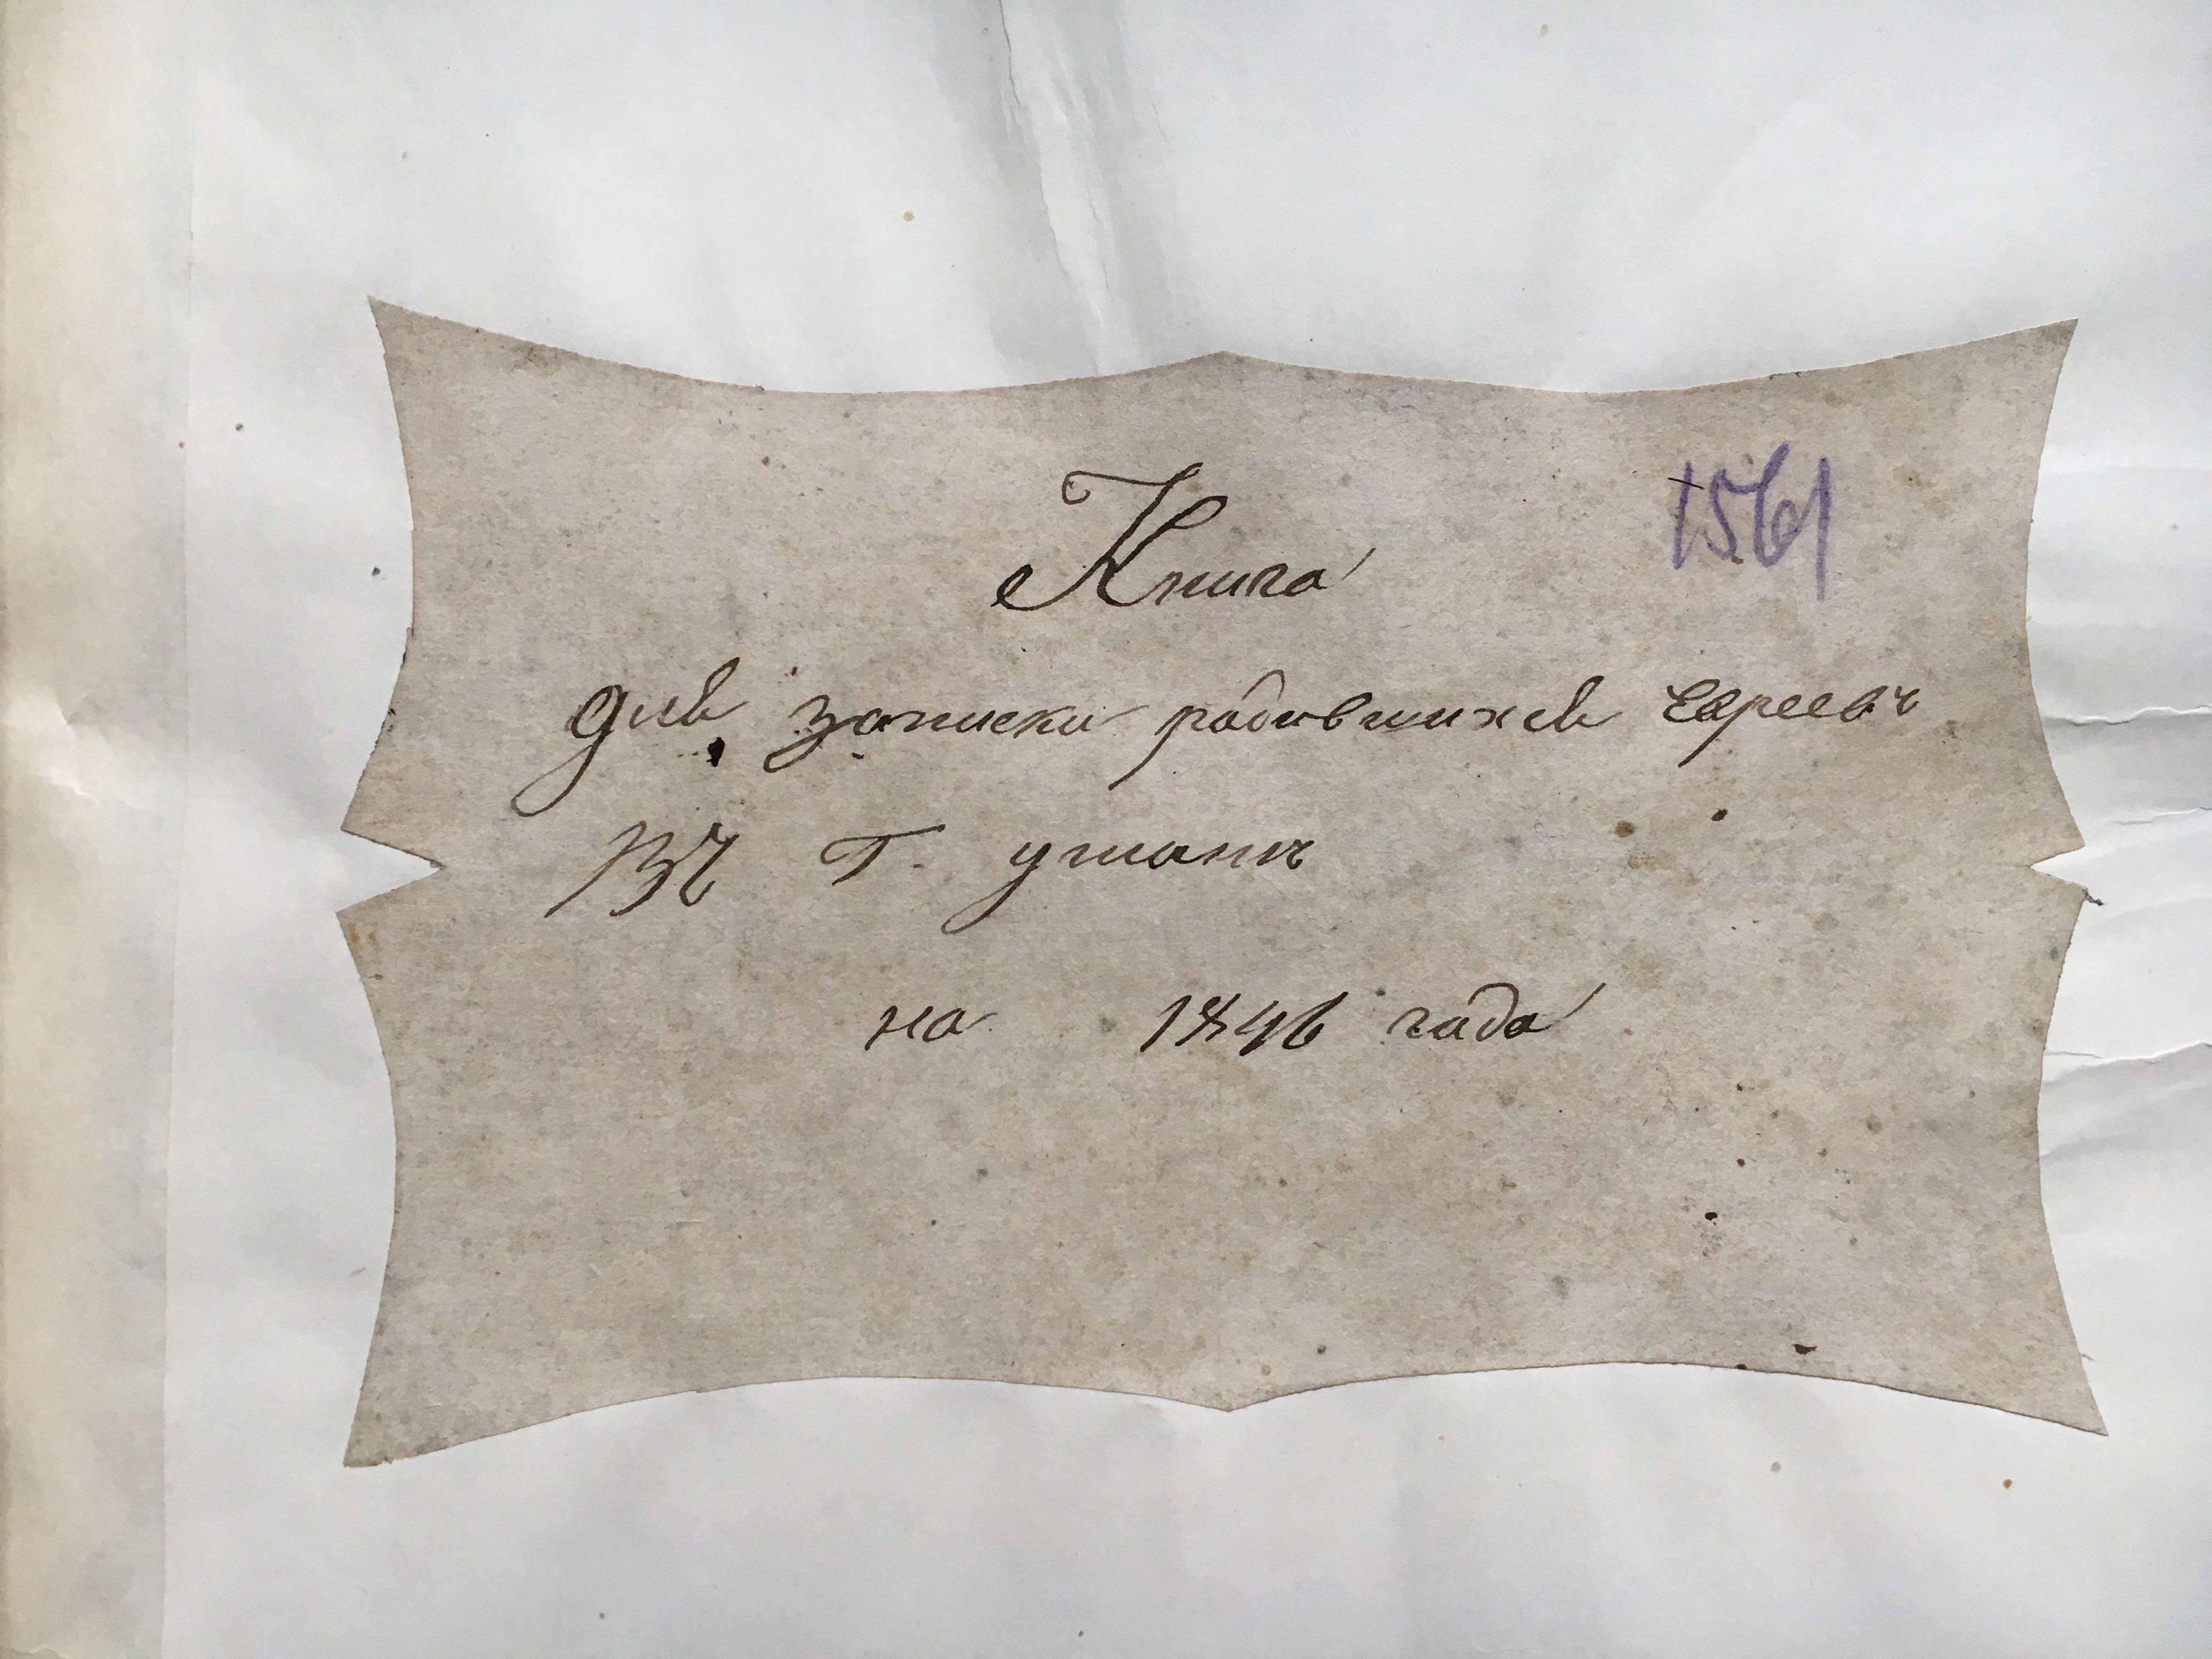 Книга
1561
для записки родившихся евреевъ
въ г. умань
на 1846 года